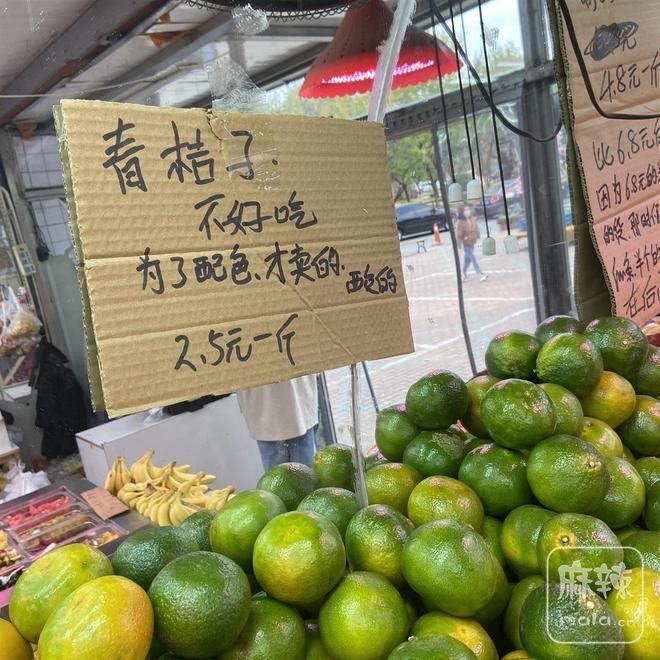 青桔子.
不好吃
为了配色、才卖的. 酸的
2.5元一斤
元
4.8元一斤
6.8元
因为6.8元
的货、那时
在
麻辣
mala.cn